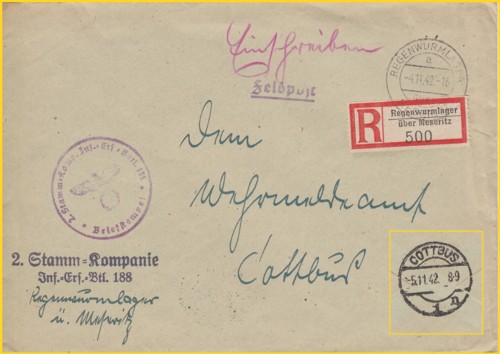 Einschreiben
Feldpost
REGENWURMLAGER
a
-4.11.42.-16
R
Regenwurmlager
über Meseritz
500
Dem
Wehrmeldeamt
Cottbus
2. Stamm-Komp. Inf.-Ers.-Btl. 188
Briefstempel
2. Stamm-Kompanie
Inf.-Ers.-Btl. 188
Regenwurmlager
ü. Meseritz
COTTBUS
-5.11.42. 8-9
1 n